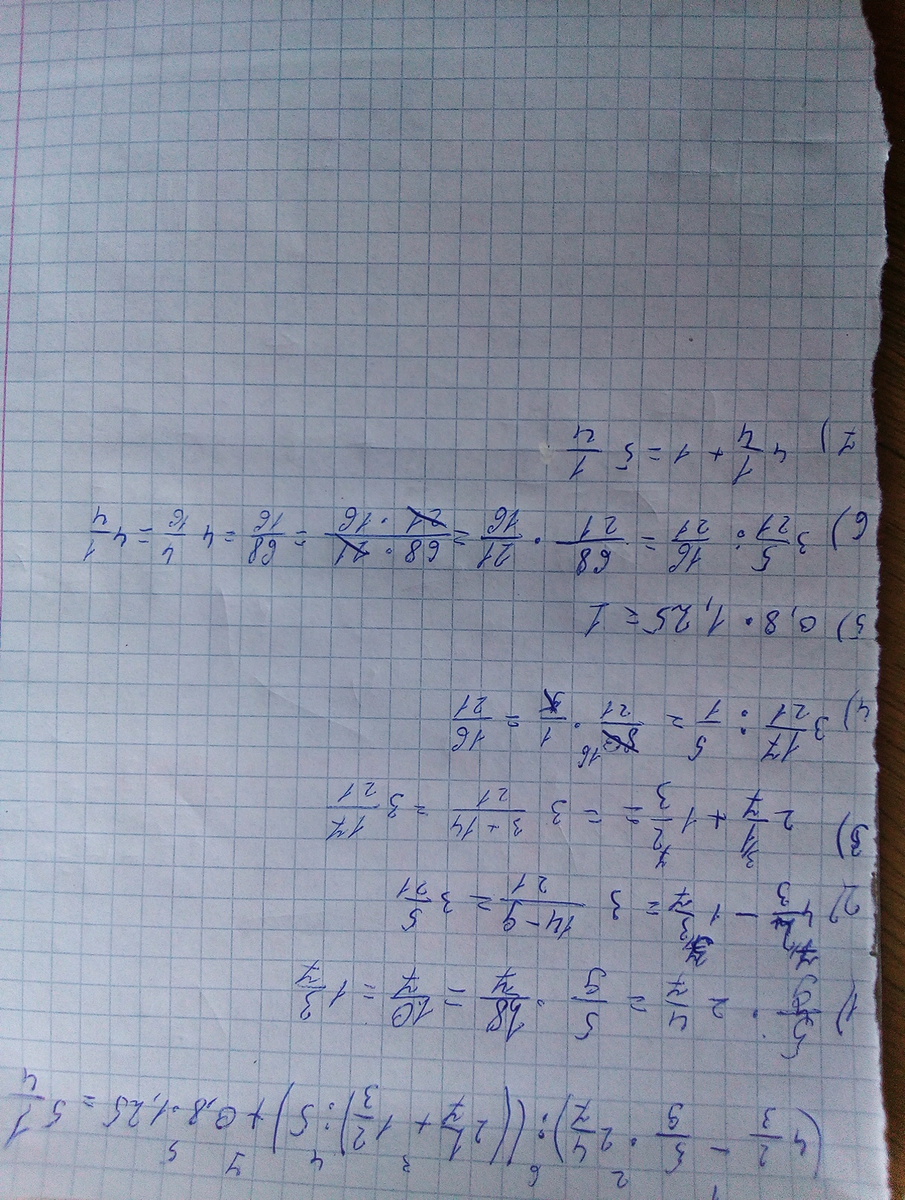 1 2 6 3 4 7 5
(4 2/3 - 5/9 · 2 4/7) : ((2 1/7 + 1 2/3) : 5) + 0,8 · 1,25 = 5 1/4
1) 5/9 · 2 4/7 = 5/9 · 18/7 = 10/7 = 1 3/7
2) 4 2/3 - 1 3/7 = 3 14-9/21 = 3 5/21
3) 2 1/7 + 1 2/3 = = 3 3+14/21 = 3 17/21
4) 3 17/21 : 5/1 = 80/21 · 1/5 = 16/21
5) 0,8 · 1,25 = 1
6) 3 5/21 : 16/21 = 68/21 · 21/16 = 68 · 21/21 · 16 = 68/16 = 4 4/16 = 4 1/4
7) 4 1/4 + 1 = 5 1/4